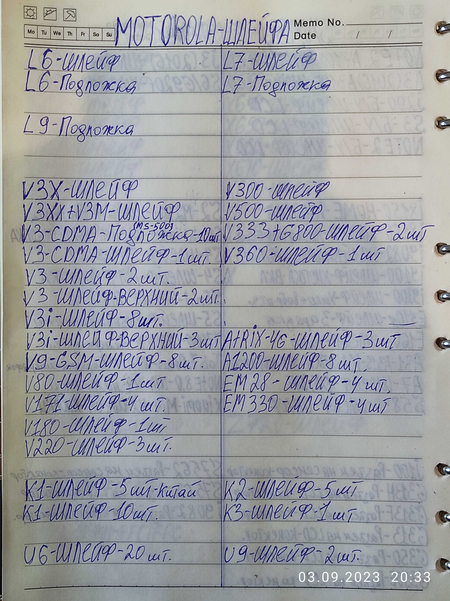 MOTOROLA-ШЛЕЙФА
Memo No.
Mo Tu We Th Fr Sa Su
Date / /
L6-шлейф
L6-Подложка
L9-Подложка
V3X-шлейф
V3XX+V3M-шлейф
(MS-500)
V3-CDMA-Подложка-10шт
V3-CDMA-шлейф-1шт.
V3-шлейф-2шт.
V3-шлейф-верхний-2шт.
V3i-шлейф-8шт.
V3i-шлейф-верхний-3шт.
V9-GSM-шлейф-8шт.
V80-шлейф-1шт
V171-шлейф-4шт.
V180-шлейф-1шт
V220-шлейф-3шт.
K1-шлейф-5шт-китай
K1-шлейф-10шт.
U6-шлейф-20шт.
L7-шлейф
L7-Подложка
V300-шлейф
V500-шлейф
V333+G800-шлейф-2шт
V360-шлейф-1шт
AtRiX-4G-шлейф-3шт
A1200-шлейф-8шт.
EM28-шлейф-4шт.
EM330-шлейф-4шт
K2-шлейф-5шт
K3-шлейф-1шт
U9-шлейф-2шт.
03.09.2023 20:33